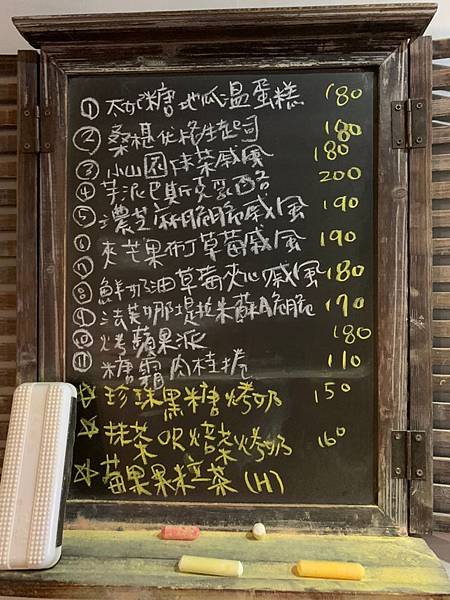 ① 太妃糖地瓜溫蛋糕 180
② 桑椹优格生起司 180
③ 小山園抹茶戚風 180
④ 芋泥巴斯克乳酪 200
⑤ 濃芝麻脆脆戚風 190
⑥
⑦ 夾芒果布丁草莓戚風 190
⑧ 鮮奶油草莓夾心戚風 180
⑨ 法芙娜堤拉米蘇脆脆 170
⑩ 烤蘋果派 180
⑪ 糖霜肉桂捲 110
☆ 珍珠黑糖烤奶 150
☆ 抹茶OR焙茶烤奶 160
☆ 莓果果粒茶(H)